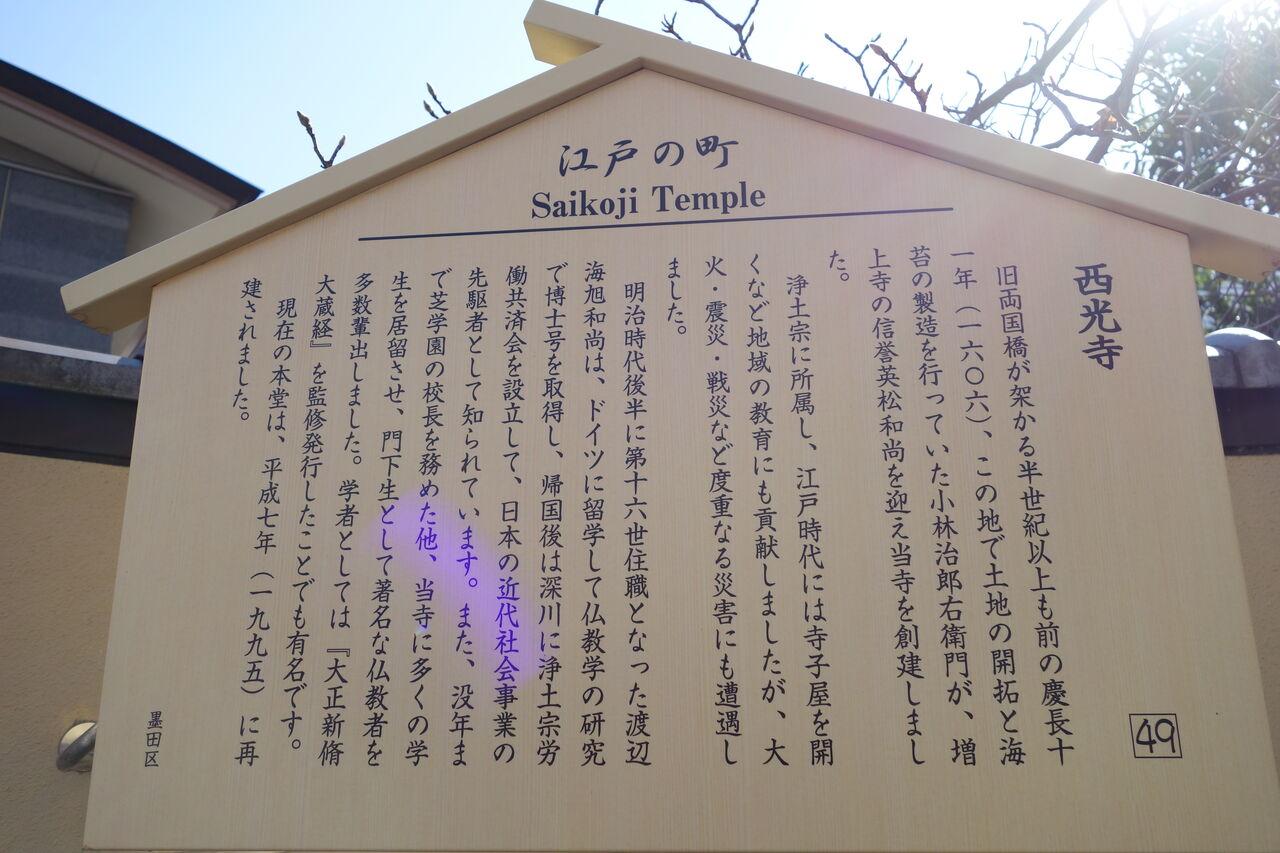 江戸の町
Saikoji Temple
西光寺
旧両国橋が架かる半世紀以上も前の慶長十
一年（一六〇六）、この地で土地の開拓と海
苔の製造を行っていた小林治郎右衛門が、増
上寺の信誉英松和尚を迎え当寺を創建しまし
た。
浄土宗に所属し、江戸時代には寺子屋を開
くなど地域の教育にも貢献しましたが、大
火・震災・戦災など度重なる災害にも遭遇し
ました。
明治時代後半に第十六世住職となった渡辺
海旭和尚は、ドイツに留学して仏教学の研究
で博士号を取得し、帰国後は深川に浄土宗労
働共済会を設立して、日本の近代社会事業の
先駆者として知られています。また、没年ま
で芝学園の校長を務めた他、当寺に多くの学
生を居留させ、門下生として著名な仏教者を
多数輩出しました。学者としては『大正新脩
大蔵経』を監修発行したことでも有名です。
現在の本堂は、平成七年（一九九五）に再
建されました。
墨田区
49